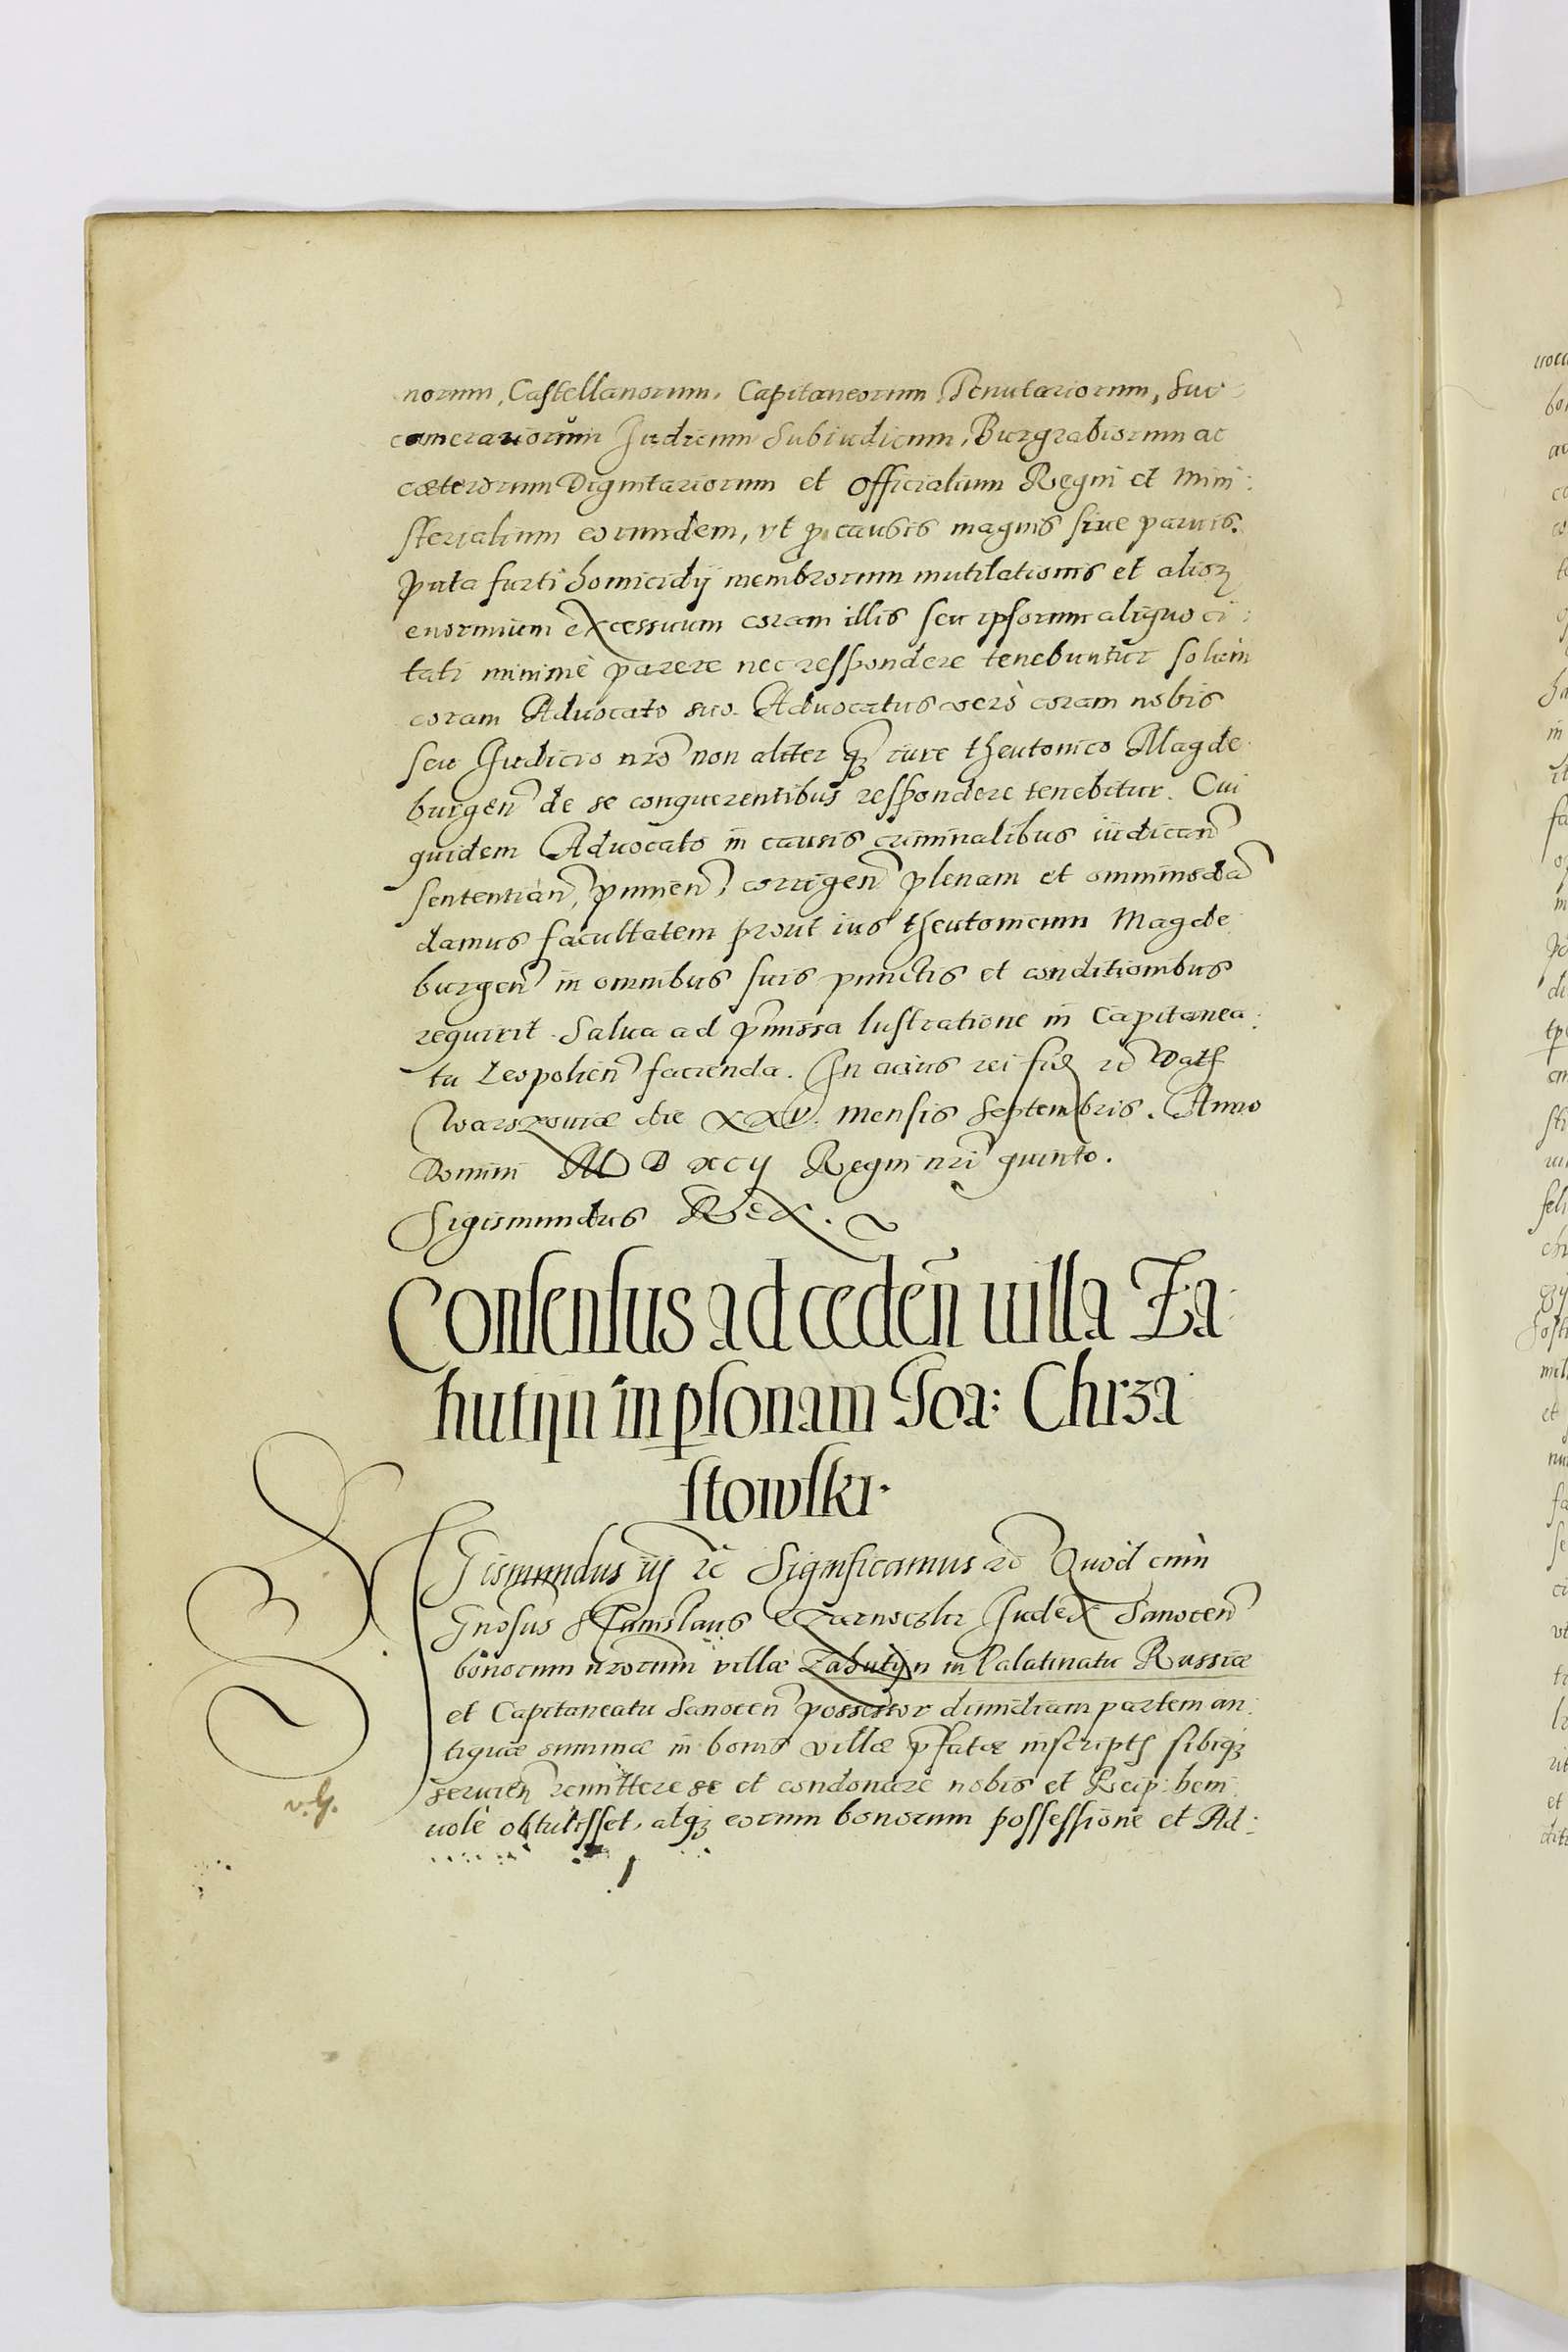 norum, Castellanorum, Capitaneorum Tenutariorum, Suc
camerariorum Iudicum Subiudicum, Burgrabiorum ac
cæterorum Dignitariorum et Officialium Regni et Mini:
sterialium eorundem, vt p causis magnis siue paruis.
puta furti homicidÿ membrorum mutilationis et alioꝝ
enormium excessuum coram illis seu ipsorum aliquo ci:
tati minimè parere nec respondere tenebuntur solùm
coram Aduocato suo. Aduocatus verò coram nobis
seu Iudicio nr̃o non aliter qꝫ iure theutonico Magde
burgen̄ de se conquerentibus respondere tenebitur. Cui
quidem Aduocato in causis criminalibus iudican̄
sententian̄, punien̄, corrigen̄ plenam et omnimodã
damus facultatem prout ius theutonicum Magde
burgen̄ in omnibus suis punctis et conditionibus
requirit. Salua ad p̄missa lustratione in Capitanea:
tu Leopolien̄ facienda. In cuius rei fidꝫ
Warszouiæ die XXV. mensis Septembris. Anno
Domini M D xcij Regni nr̃i quinto.
Sigismundus Rex.
Consensus ad ceden̄ uilla Za
hutÿn in p̱sonam Ioa: Chrza
stowski.
Sigismundus iij Significamus Quod cum
Gnosus Stanislaus Czarnoczki Iudex Sanocen̄
bonorum nr̃orum villæ Zahutÿn in Palatinatu Russiæ
et Capitaneatu Sanocen̄ possessor dimidiam partem an:
tiquæ summæ in bonis villæ p̄fatæ inscriptꝭ sibiqꝫ
seruien̄ remittere se et condonare nobis et Reip: beni
uolè obtulisset, atqꝫ eorum bonorum possessione et Ad:
v. G.